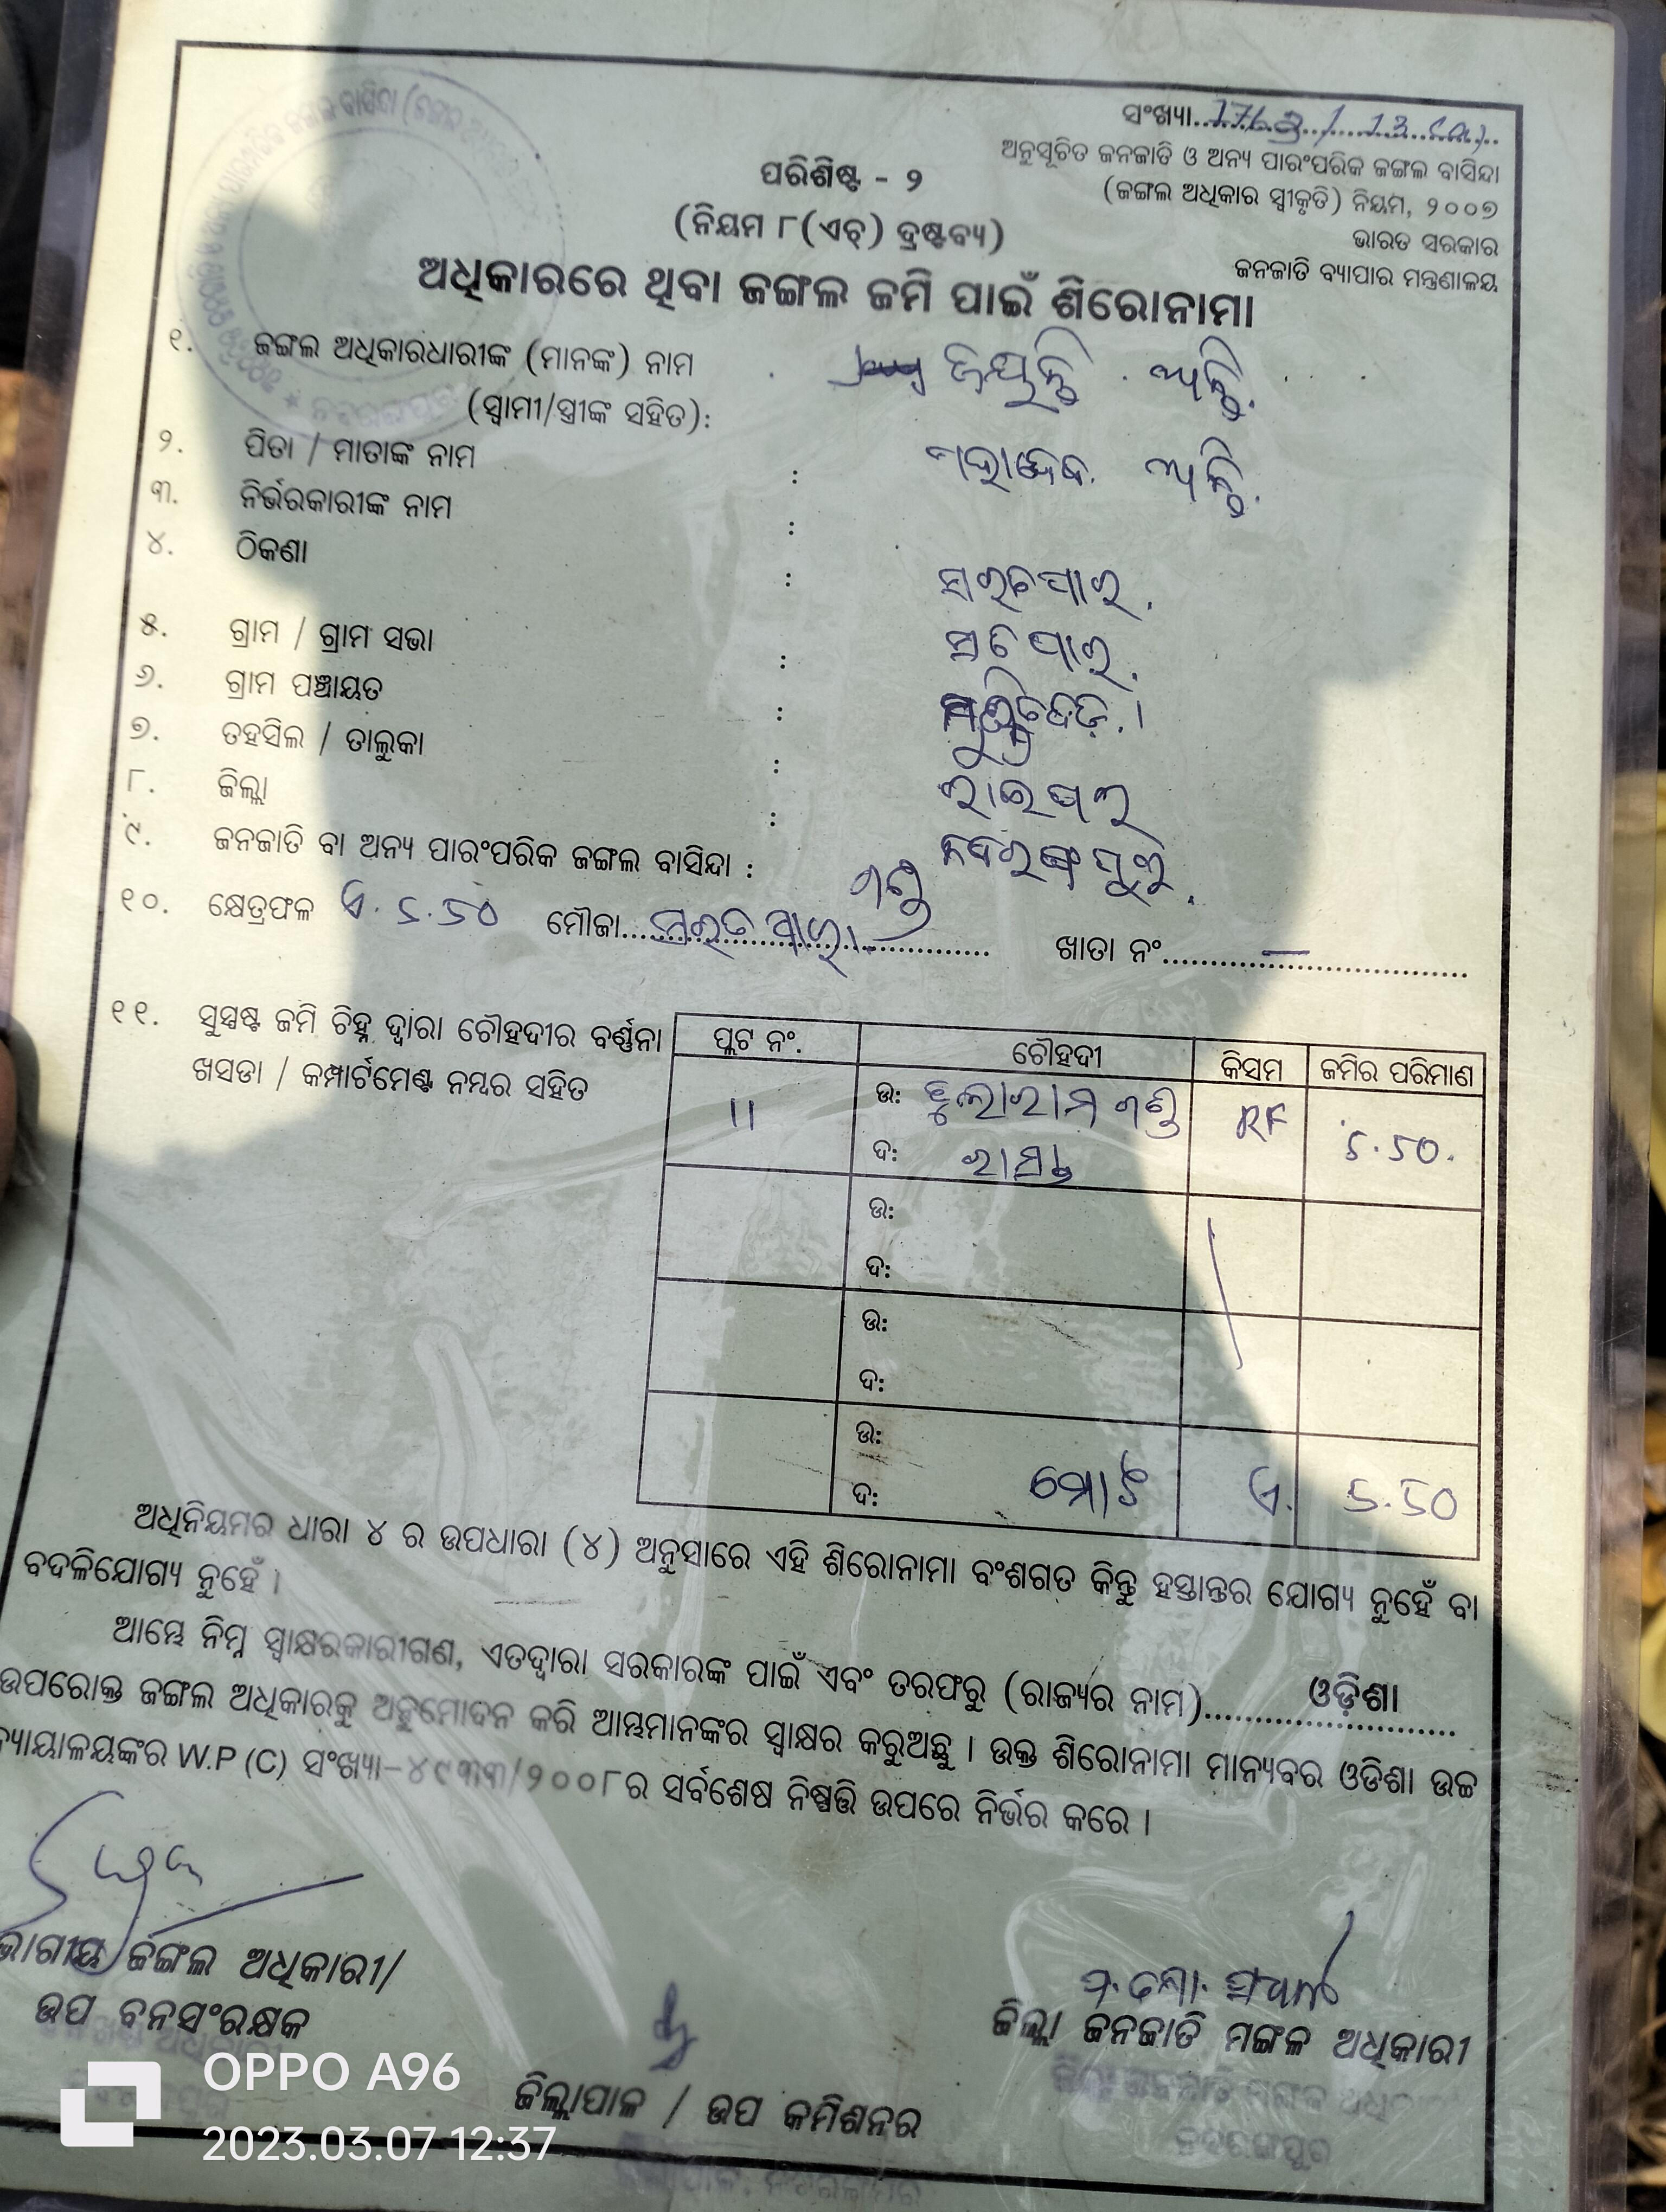 ସଂଖ୍ୟା
ଅନୁସୂଚିତ ଜନଜାତି ଓ ଅନ୍ୟ ପାରଂପରିକ ଜଙ୍ଗଲ ବାସିନ୍ଦା
(ଜଙ୍ଗଲ ଅଧିକାର ସ୍ୱୀକୃତି) ନିୟମ, ୨୦୦୭
ଭାରତ ସରକାର
ଜନଜାତି ବ୍ୟାପାର ମନ୍ତ୍ରଣାଳୟ
ପରିଶିଷ୍ଟ - ୨
(ନିୟମ ୮(ଏଚ୍) ଦ୍ରଷ୍ଟବ୍ୟ)
ଅଧିକାରରେ ଥିବା ଜଙ୍ଗଲ ଜମି ପାଇଁ ଶିରୋନାମା
୧. ଜଙ୍ଗଲ ଅଧିକାରଧାରୀଙ୍କ (ମାନଙ୍କ) ନାମ
(ସ୍ୱାମୀ/ସ୍ତ୍ରୀଙ୍କ ସହିତ):
୨. ପିତା / ମାତାଙ୍କ ନାମ :
୩. ନିର୍ଭରକାରୀଙ୍କ ନାମ :
୪. ଠିକଣା :
୫. ଗ୍ରାମ / ଗ୍ରାମ ସଭା :
୬. ଗ୍ରାମ ପଞ୍ଚାୟତ :
୭. ତହସିଲ / ତାଲୁକା : ରାଇଘର
୮. ଜିଲ୍ଲା : ନବରଙ୍ଗପୁର
୯. ଜନଜାତି ବା ଅନ୍ୟ ପାରଂପରିକ ଜଙ୍ଗଲ ବାସିନ୍ଦା : ଗଣ୍ଡ
୧୦. କ୍ଷେତ୍ରଫଳ ଏ. 5.50 ମୌଜା ଖାତା ନଂ. –
୧୧. ସୁସ୍ପଷ୍ଟ ଜମି ଚିହ୍ନ ଦ୍ୱାରା ଚୌହଦୀର ବର୍ଣ୍ଣନା
ଖସଡା / କମ୍ପାର୍ଟମେଣ୍ଟ ନମ୍ବର ସହିତ
ପ୍ଲଟ ନଂ. ଚୌହଦୀ କିସମ ଜମିର ପରିମାଣ
11 ଉ: ଗଣ୍ଡ RF 5.50.
ଦ: ରାସ୍ତା
ଉ:
ଦ:
ଉ:
ଦ:
ଉ:
ଦ: ମୋଟ ଏ. 5.50
ଅଧିନିୟମର ଧାରା ୪ ର ଉପଧାରା (୪) ଅନୁସାରେ ଏହି ଶିରୋନାମା ବଂଶଗତ କିନ୍ତୁ ହସ୍ତାନ୍ତର ଯୋଗ୍ୟ ନୁହେଁ ବା
ବଦଳିଯୋଗ୍ୟ ନୁହେଁ ।
ଆମ୍ଭେ ନିମ୍ନ ସ୍ୱାକ୍ଷରକାରୀଗଣ, ଏତଦ୍ୱାରା ସରକାରଙ୍କ ପାଇଁ ଏବଂ ତରଫରୁ (ରାଜ୍ୟର ନାମ) ଓଡ଼ିଶା
ଉପରୋକ୍ତ ଜଙ୍ଗଲ ଅଧିକାରକୁ ଅନୁମୋଦନ କରି ଆମ୍ଭମାନଙ୍କର ସ୍ୱାକ୍ଷର କରୁଅଛୁ । ଉକ୍ତ ଶିରୋନାମା ମାନ୍ୟବର ଓଡିଶା ଉଚ୍ଚ
ନ୍ୟାୟାଳୟଙ୍କର W.P (C) ସଂଖ୍ୟା-୪୯୩୩/୨୦୦୮ର ସର୍ବଶେଷ ନିଷ୍ପତ୍ତି ଉପରେ ନିର୍ଭର କରେ ।
ଭାଗୀୟ ଜଙ୍ଗଲ ଅଧିକାରୀ/
ଉପ ବନସଂରକ୍ଷକ
ଜିଲ୍ଲା ଜନଜାତି ମଙ୍ଗଳ ଅଧିକାରୀ
ଜିଲ୍ଲାପାଳ / ଉପ କମିଶନର
OPPO A96
2023.03.07 12:37